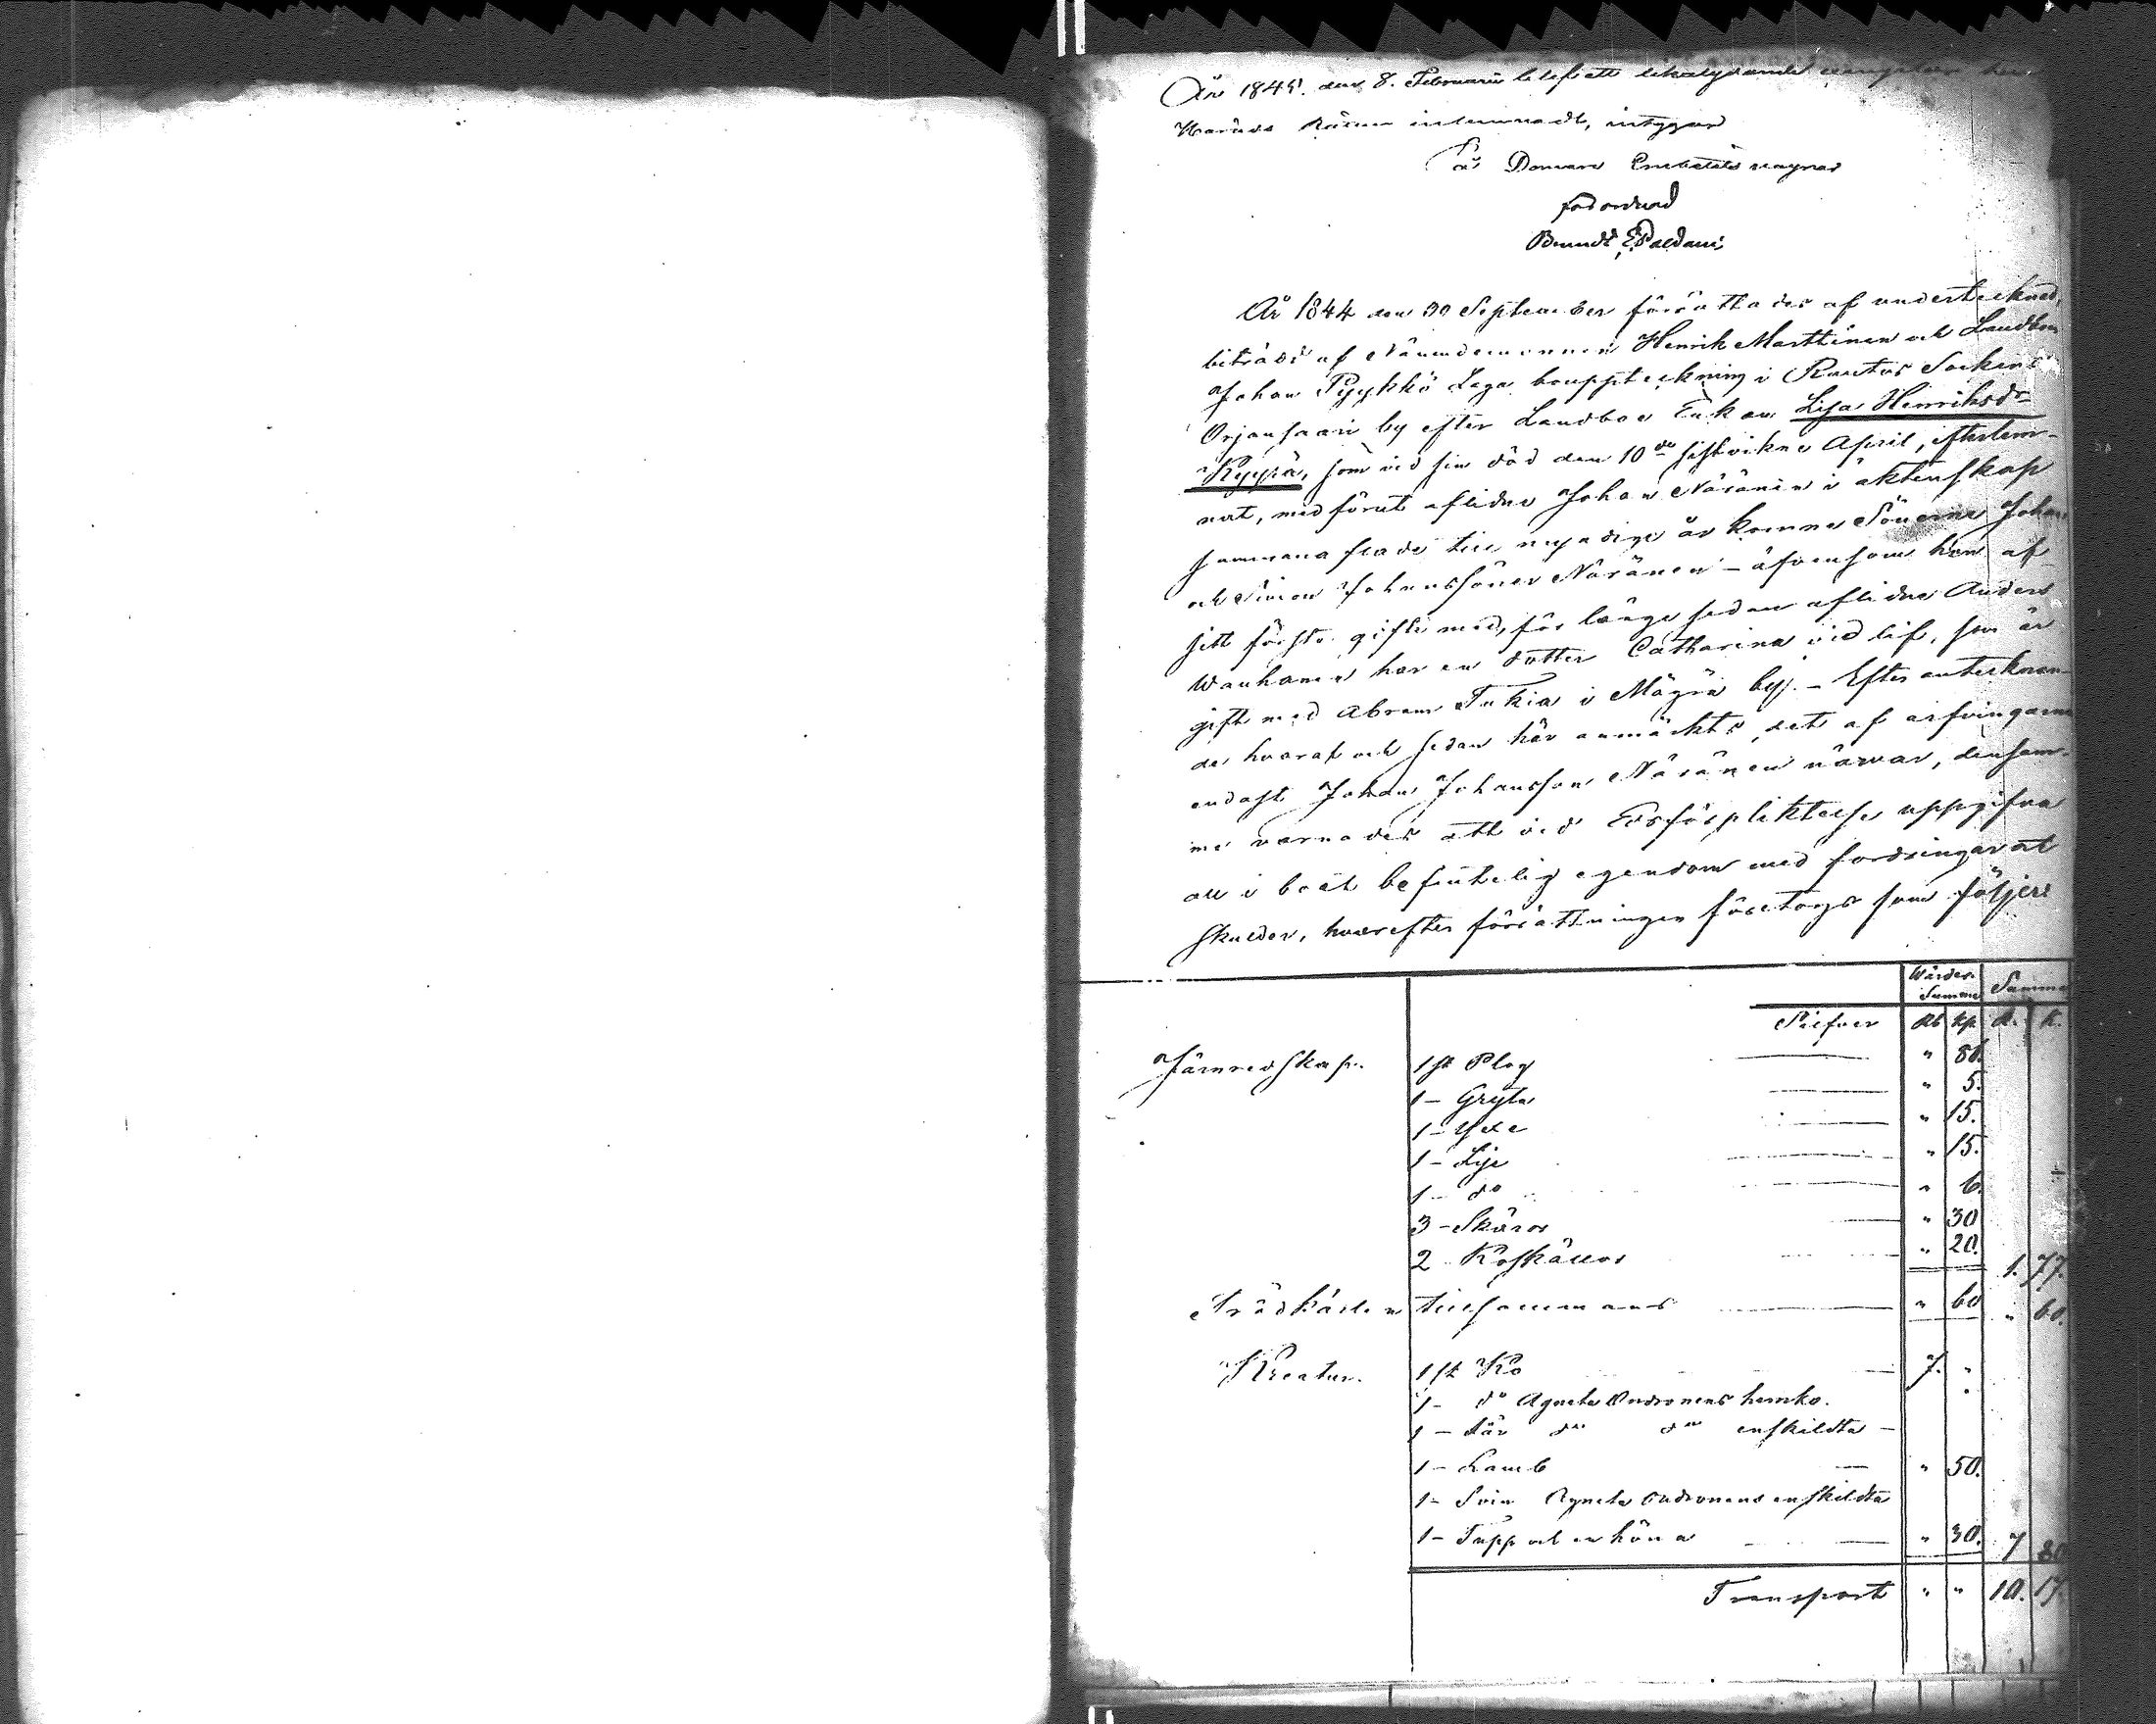 År 1845. den 8. Februarii blef ett likalydande
Härads Rätten inlemnadt, intygar
På Domare Embetets wagnar
förordnad
Berndt E Paldani
År 1844 den 30 September förrättades af undertecknad,
biträdd af Nämndemannen Henrik Marttinen och Landbon
Johan Pyykkö Laga bouppteckning i Rautus Sockens
Orjansaari by efter Landboe Enkan Lisa Henriksdr
Kyyrä, som vid sin död den 10de sistvikne April, efterlem-
nat, med förut aflidne Johan Näränen i äktenskap
sammanaflade till myndige år komne Sönerne Johan
och Simon Johanssöner Näränen – äfvensom hon af
sitt första gifte med, för länge sedan aflidne Anders
Wanhanen har en dotter Catharina vid lif, som är
gift med Abram Tukia i Mägrä by. – Efter antecknan-
de hvaraf och sedan här anmärkts, det af arfvingarne
endast Johan Johansson Näränen närvar, densam-
me varnades att vid Edsförpliktelse uppgifva
all i boet befintelig egendom med fordringar och
skulder, hvarefter förrättningen företogs som följer:
Wärder. Summa Summa
Silfver Rb kp. R. K.
Järnredskap. 1 st Plog " 86.
1 – Gryta " 5.
1 – Yxe " 15.
1 – Lije " 15.
1 – do " 6.
3 – Skäror " 30
2 Koskällor " 20. 1. 77.
Trädkärlen tillsammans " 60 " 60.
Kreatur. 1 st Ko 7. "
1 – do Agneta Ondronens hemko.
1 – Får do do enskildta –
1 – Lamb " 50.
1 – Svin Agneta Ondronens enskildta
1 – Tupp och en höna " 30. 7 80
Transport " " 10. 17.